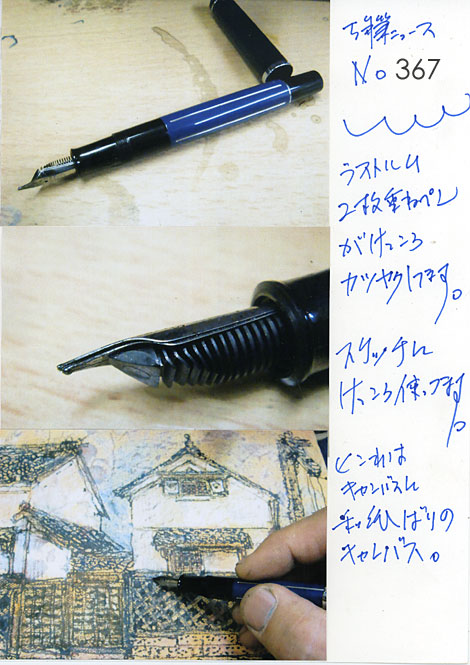 ニュース
No 367
ラストルム
2枚重ねペン
がけっこう
カツヤクしてます。
スケッチに
けっこう使ってます。
これは
キャンバスに
ばりの
キャンバス。